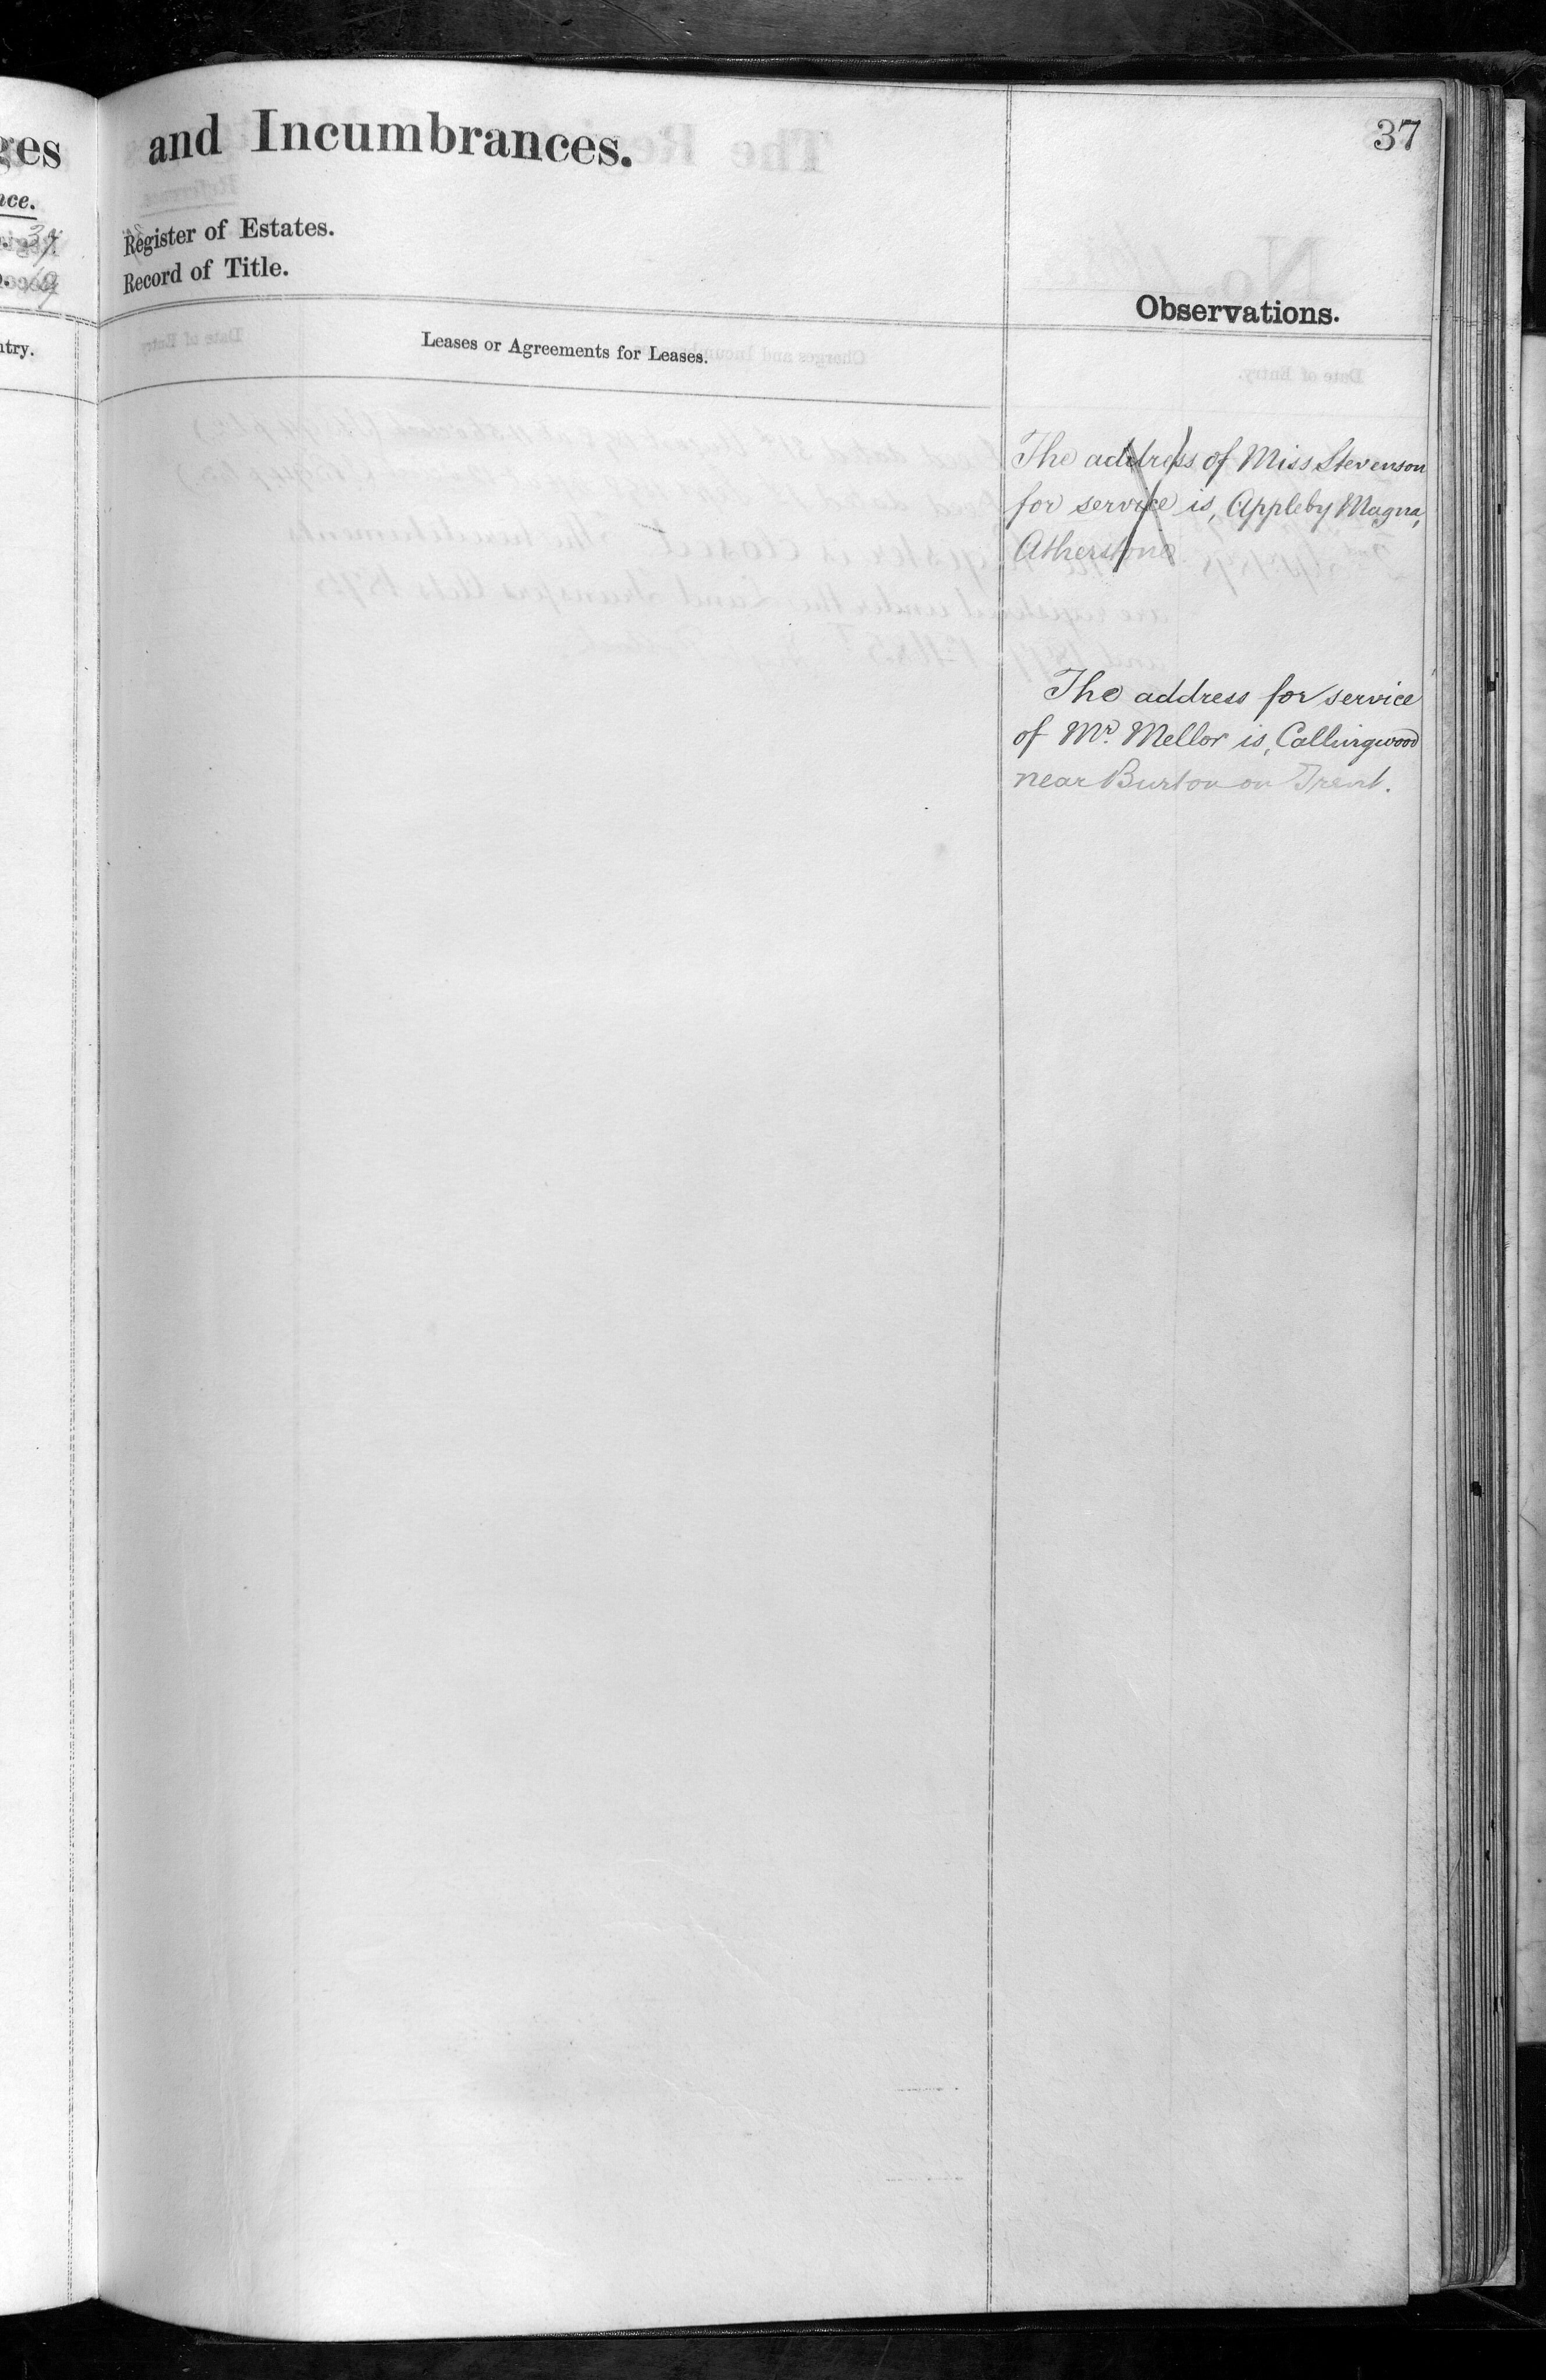 ges
and Incumbrances.
37
nce.
Register of Estates.
Record of Title.
Observations.
ntry.
Leases or Agreements for Leases.
The address of Miss Stevenson
for service is, Appleby Magna,
Atherstone
The address for service
of Mr. Mellor is, Callingwood
near Burton on Trent.